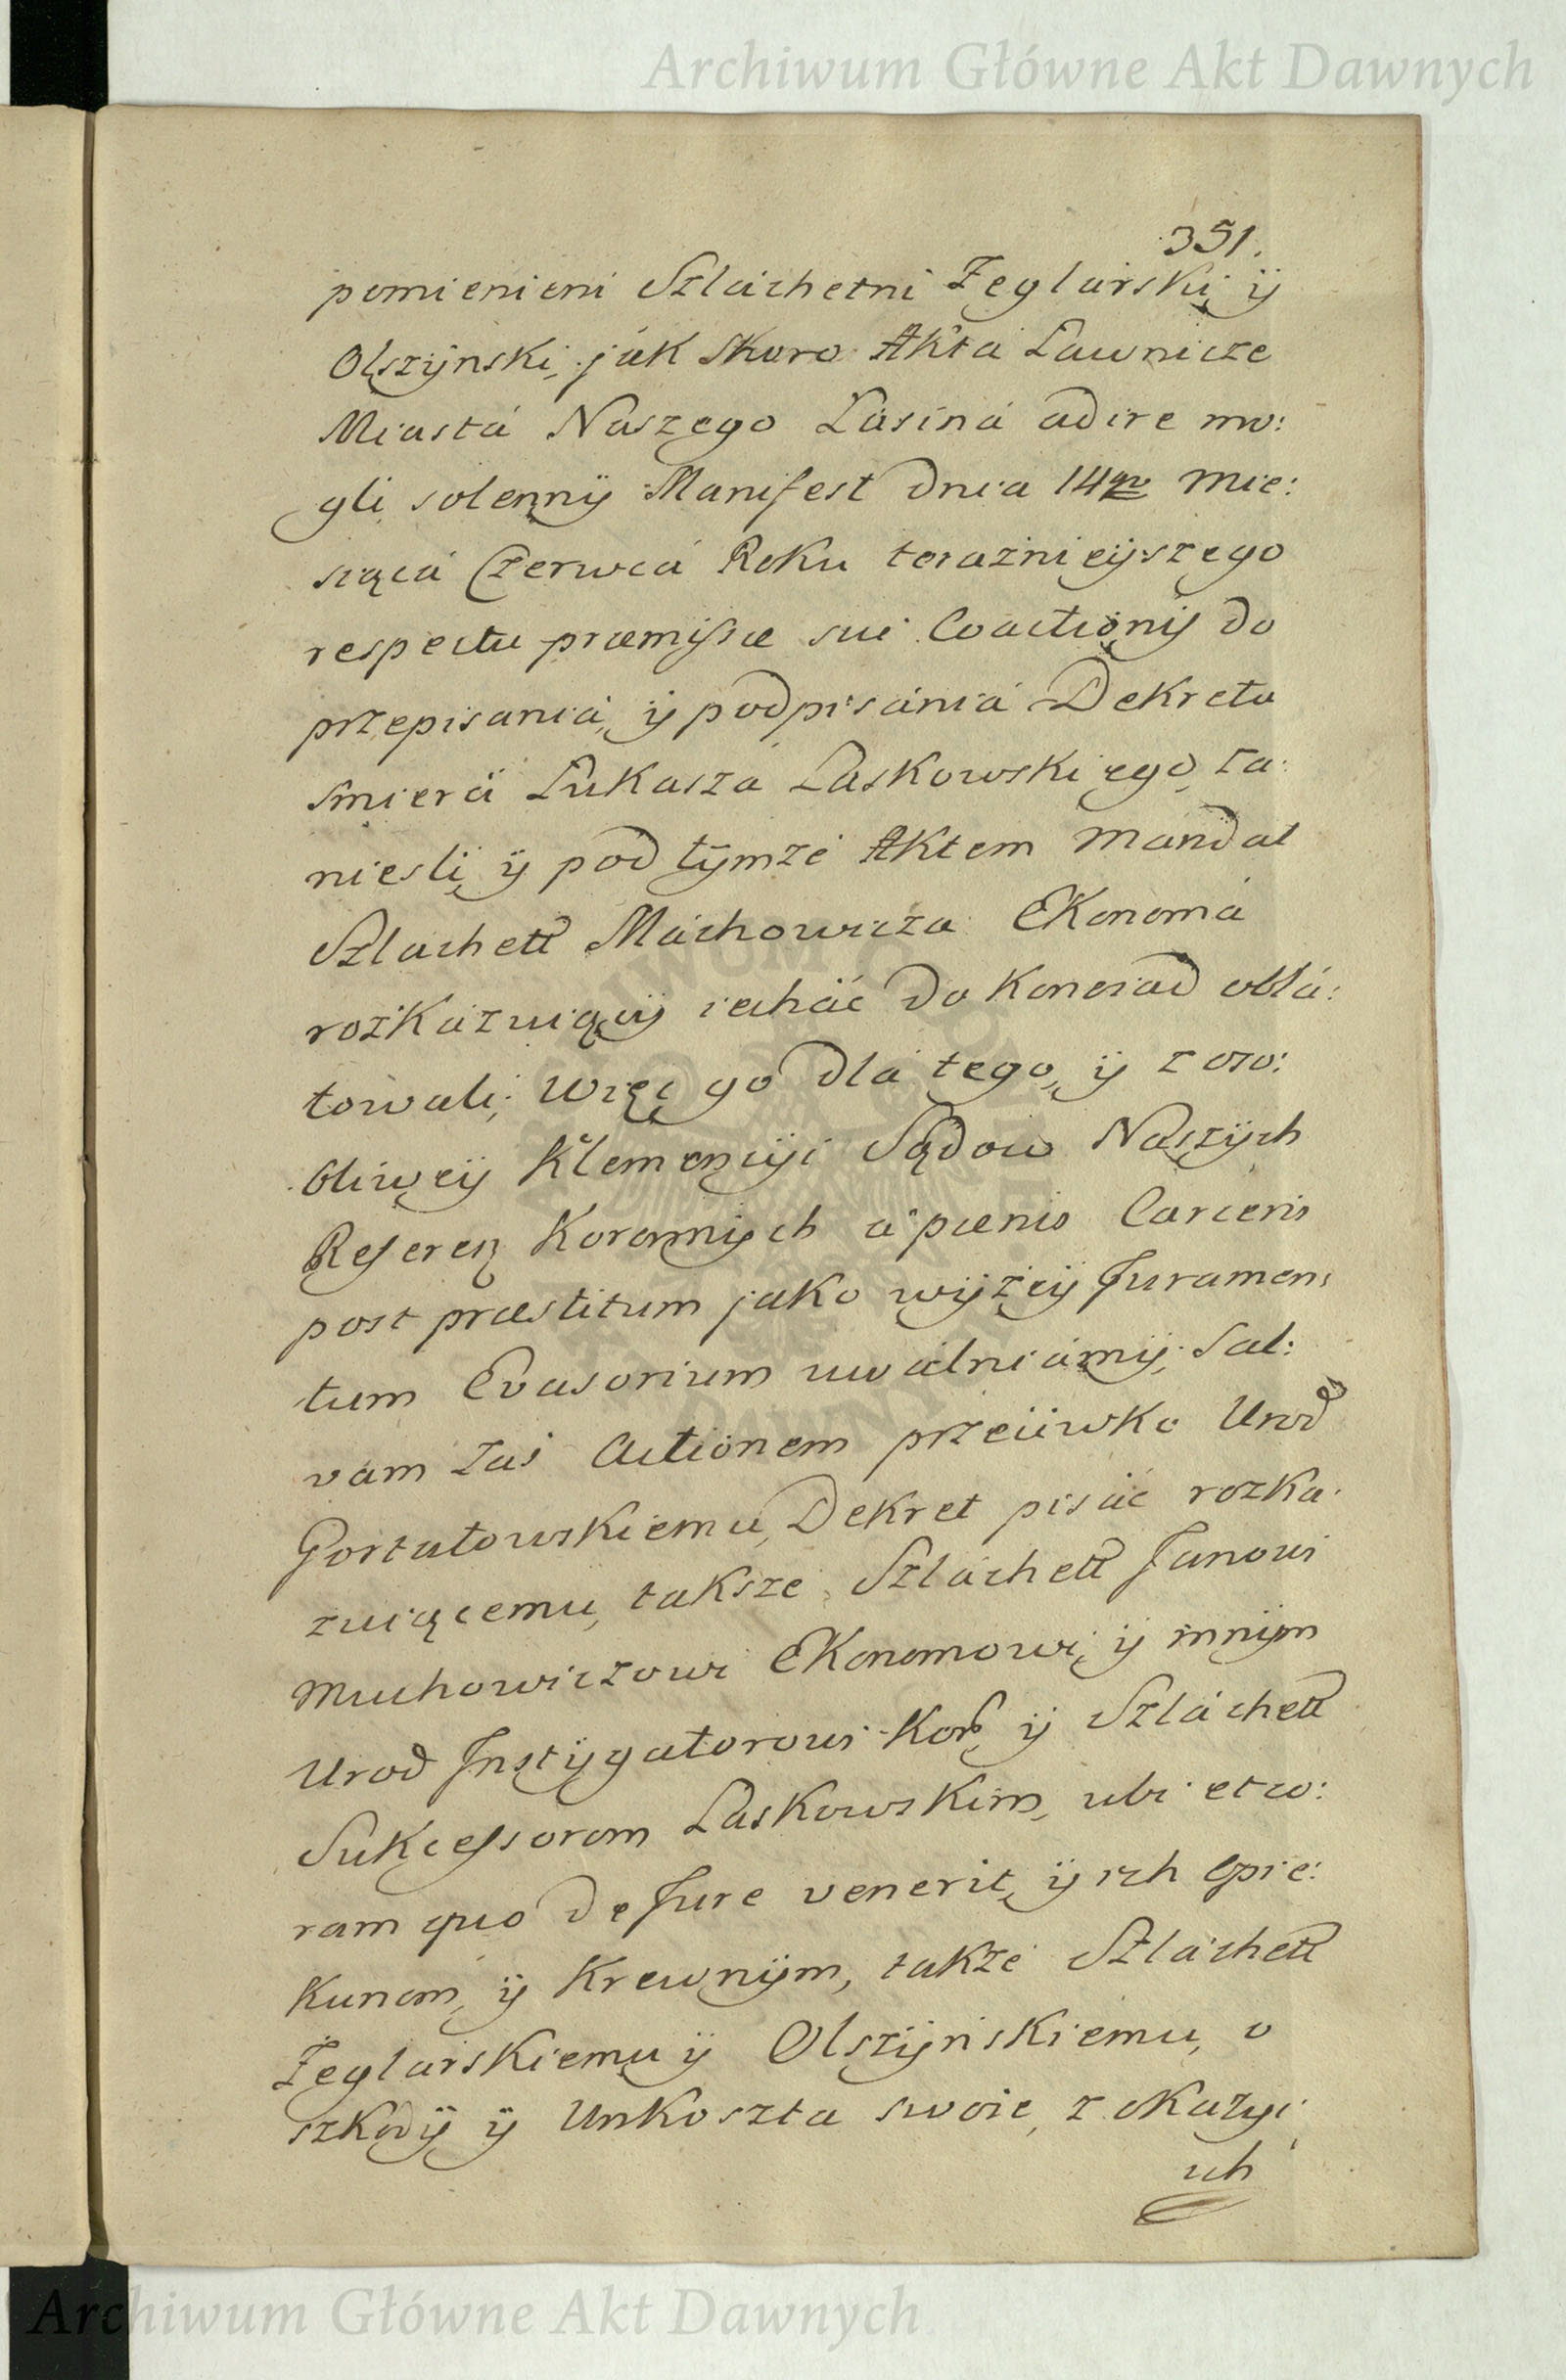 Archiwum Główne Akt Dawnych
351.
pomienieni Szlachetni Żeglarski, ÿ
Olszÿnski, ják skoro Akta Ławnicze
Miastá Naszego Łasiná adire mo:
gli, solennÿ Manifest dnia 14go Mie:
siącá Czerwcá Roku teraźnieÿszego
respectu præmissæ sui Coactionis do
przepisaniá, ÿ podpisániá Dekretu
smierći Łukasza Laskowskiego, za:
niesli, ÿ pod tÿmże Aktem Mandat
Szlachett Máchowicza Ekonomá
rozkázuiącÿ iecháć do Konoiad oblá:
towali; Więc go dlá tego, ÿ z oso:
bliwęÿ Klemencÿi Sądow Naszÿch
Referen Koronnÿch à pænis Carceris
post præstitum jako wÿżeÿ Juramen:
tum Evasorium uwálniámÿ, Sal:
vam zaś Actionem przeciwko Urod
Gortatowskiemu, Dekret pisáć rozka:
zuiącemu, táksze Szláchett Janowi
Muchowiczowi Ekonomowi, ÿ innÿm
Urod Instÿgatorowi Kor, ÿ Szláchett
Sukcessorom Laskowskim, ubi et co:
ram quo de Jure venerit, ÿ ich Opie:
kunom, ÿ Krewnÿm, także Szláchett
Żeglarskiemu ÿ Olszÿńskiemu, o
szkodÿ ÿ Unkoszta swoie, z okazÿi
ich
Archiwum Główne Akt Dawnych